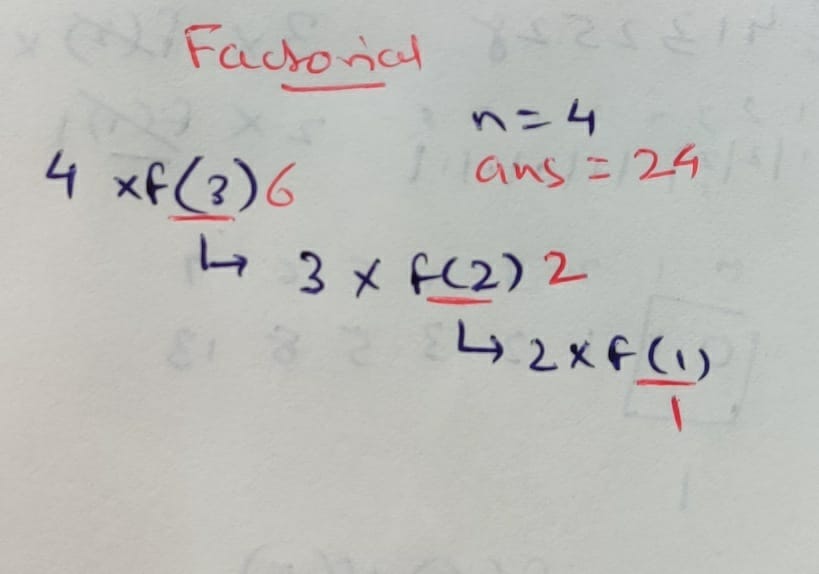 Factorial
n = 4
ans = 24
4 x f(3) 6
↳ 3 x f(2) 2
↳ 2 x f(1)
1